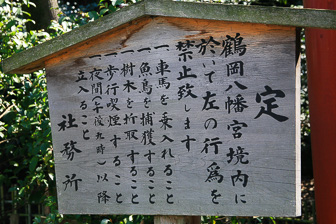 定
鶴岡八幡宮境内に
於いて左の行為を
禁止致します
一車馬を乗入れること
一魚鳥を捕獲すること
一樹木を折取すること
一歩行喫煙すること
一夜間(午後九時)以降
立入ること
社務所